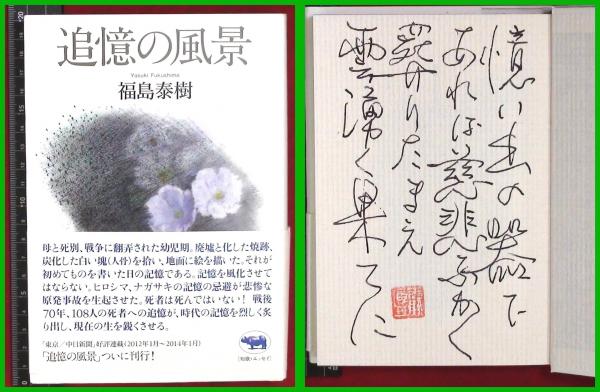 追憶の風景
Yasuki Fukushima
福島泰樹
母と死別、戦争に翻弄された幼児期。廃墟と化した焼跡、
炭化した白い塊（人骨）を拾い、地面に絵を描いた。それが
初めてものを書いた日の記憶である。記憶を風化させて
はならない。ヒロシマ、ナガサキの記憶の忌避が悲惨な
原発事故を生起させた。死者は死んではいない！ 戦後
70年、108人の死者への追憶が、時代の記憶を烈しく炙
り出し、現在の生を鋭くさせる。
「東京／中日新聞」好評連載（2012年1月～2014年1月）
「追憶の風景」ついに刊行！
［短歌・エッセイ］
憶い出の器で
あれば慈悲ふかく
葬りたまえ
雲湧く果てに